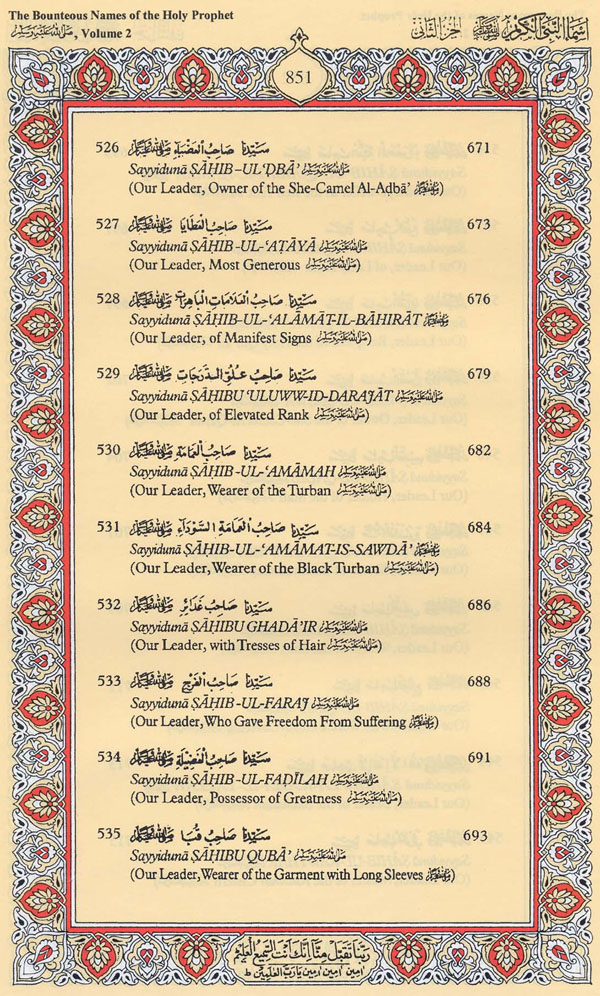 The Bounteous Names of the Holy Prophet
ﷺ, Volume 2
اسماء النبی الکریم ﷺ الجزء الثانی
851
526 سیدنا صاحب العضباء ﷺ 671
Sayyidunā ṢĀḤIB –UL‘ḌBĀ’ ﷺ
(Our Leader, Owner of the She-Camel Al-Aḍbā’ ﷺ)
527 سیدنا صاحب العطایا ﷺ 673
Sayyidunā ṢĀḤIB -UL-‘AṬĀYĀ ﷺ
(Our Leader, Most Generous ﷺ)
528 سیدنا صاحب العلامات الباهرات ﷺ 676
Sayyidunā ṢĀḤIB-UL-‘ALĀMĀT-IL-BĀHIRĀT ﷺ
(Our Leader, of Manifest Signs ﷺ)
529 سیدنا صاحب علو الدرجات ﷺ 679
Sayyidunā ṢĀḤIBU ‘ULUWW-ID-DARAJĀT ﷺ
(Our Leader, of Elevated Rank ﷺ)
530 سیدنا صاحب العمامة ﷺ 682
Sayyidunā ṢĀḤIB -UL-‘AMĀMAH ﷺ
(Our Leader, Wearer of the Turban ﷺ)
531 سیدنا صاحب العمامة السوداء ﷺ 684
Sayyidunā ṢĀḤIB-UL-‘AMĀMAT-IS-SAWDĀ’ ﷺ
(Our Leader, Wearer of the Black Turban ﷺ)
532 سیدنا صاحب غدائر ﷺ 686
Sayyidunā ṢĀḤIBU GHADĀ’IR ﷺ
(Our Leader, with Tresses of Hair ﷺ)
533 سیدنا صاحب الفرج ﷺ 688
Sayyidunā ṢĀḤIB-UL-FARAJ ﷺ
(Our Leader, Who Gave Freedom From Suffering ﷺ)
534 سیدنا صاحب الفضیلة ﷺ 691
Sayyidunā ṢĀḤIB-UL-FAḌĪLAH ﷺ
(Our Leader, Possessor of Greatness ﷺ)
535 سیدنا صاحب قبا ﷺ 693
Sayyidunā ṢĀḤIBU QUBĀ’ ﷺ
(Our Leader, Wearer of the Garment with Long Sleeves ﷺ)
ربنا تقبل منا انك انت السميع العليم
امين امين امين يارب العلمين ط